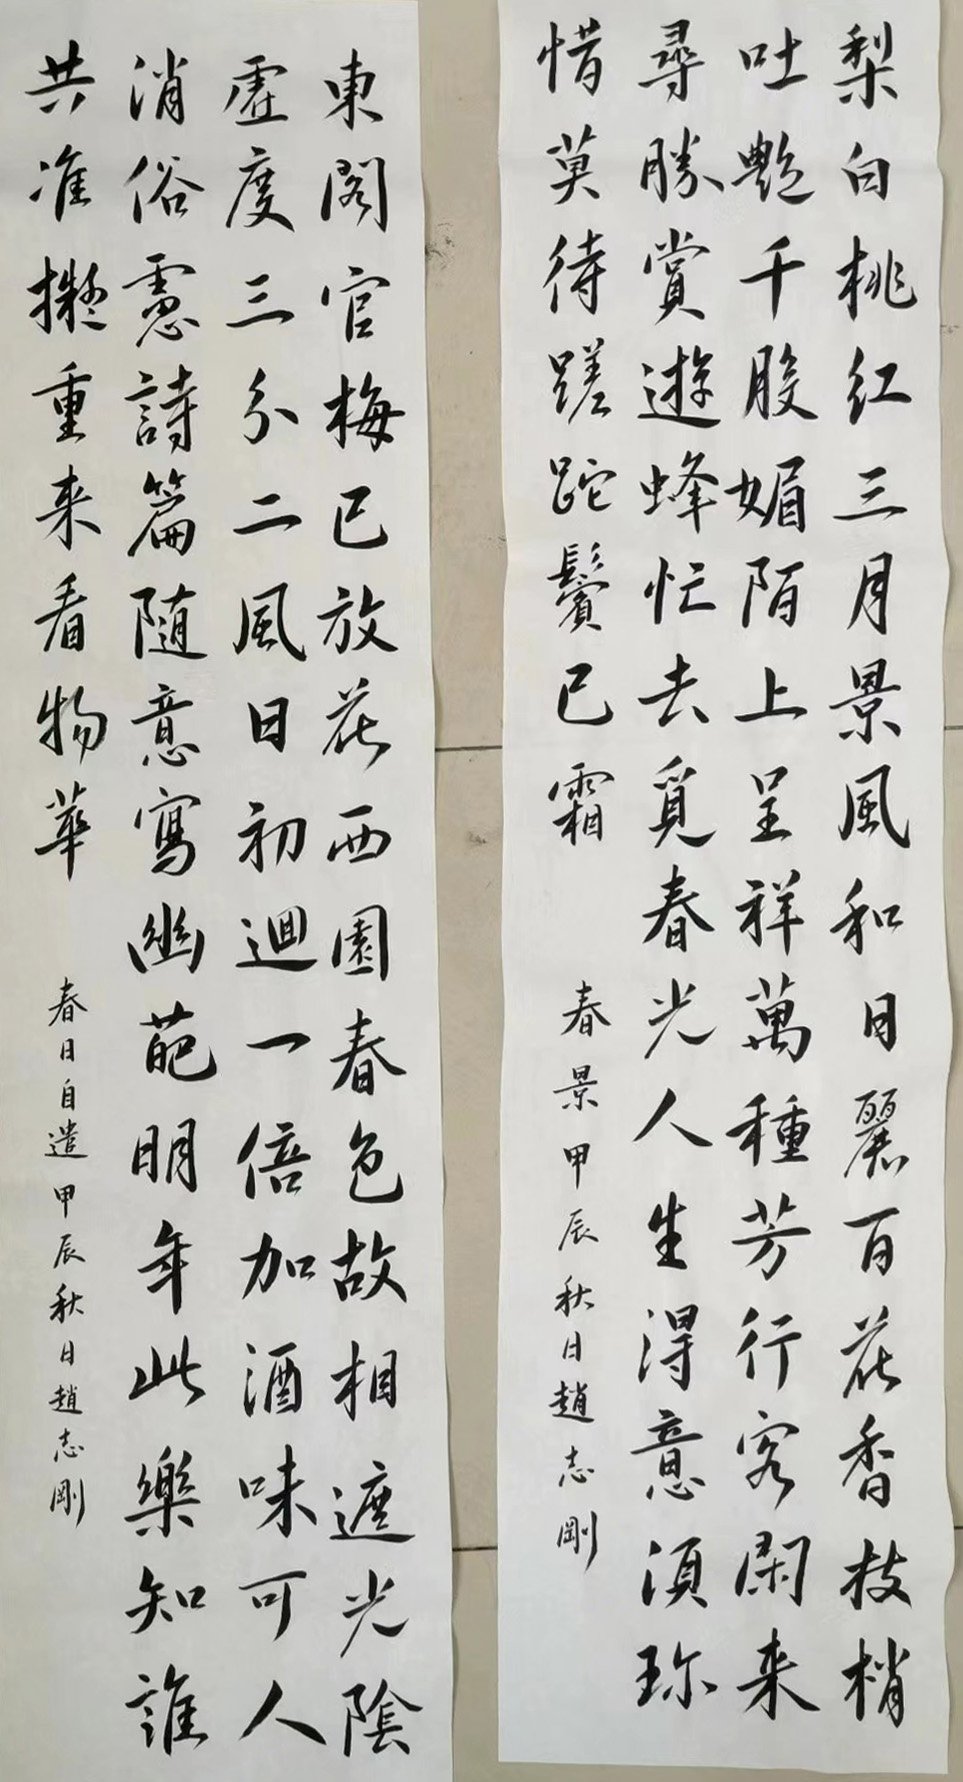 梨白桃红三月景風和日麗百花香枝梢
吐艷千股媚陌上呈祥萬種芳行客閑来
尋勝賞遊蜂忙去覓春光人生得意須珍
惜莫待蹉跎鬢已霜
春景甲辰秋日趙志剛
東閣官梅已放花西園春色故相遮光陰
虚度三分二風日初迴一倍加酒味可人
消俗慮詩篇随意寫幽葩明年此樂知誰
共准擬重来看物華
春日自遣甲辰秋日趙志剛